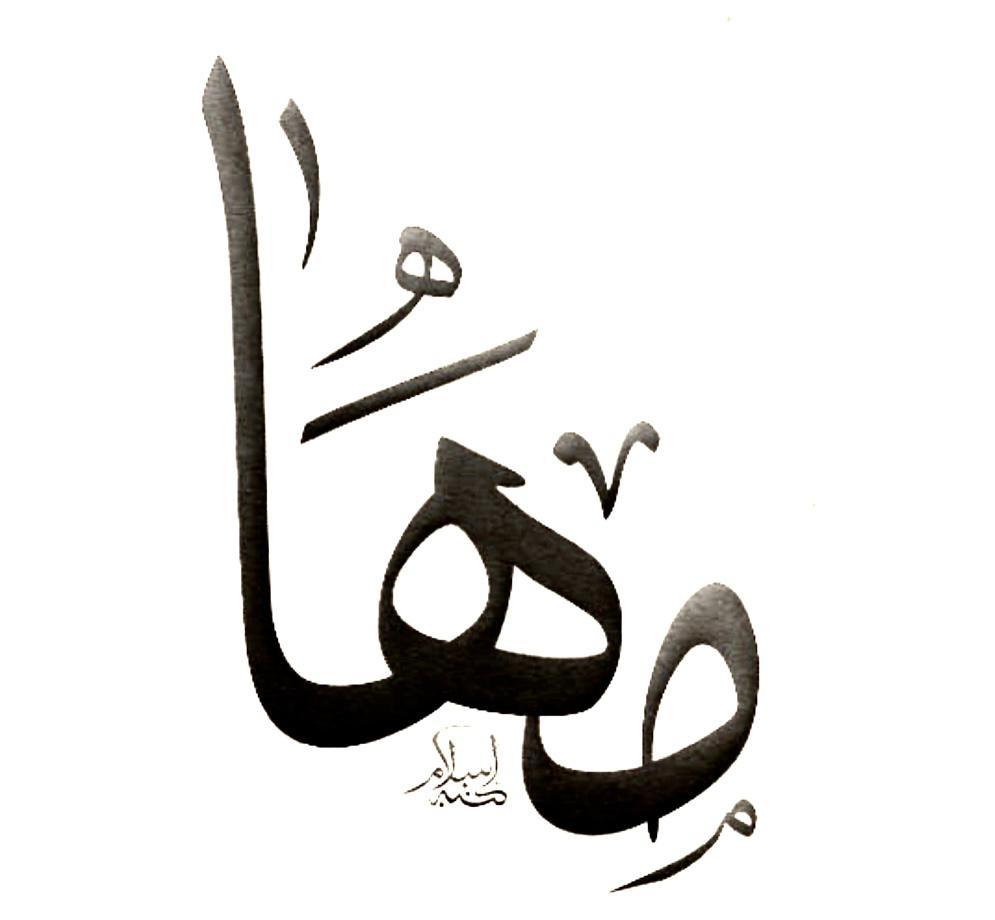 مهَا
كتبه اسلام